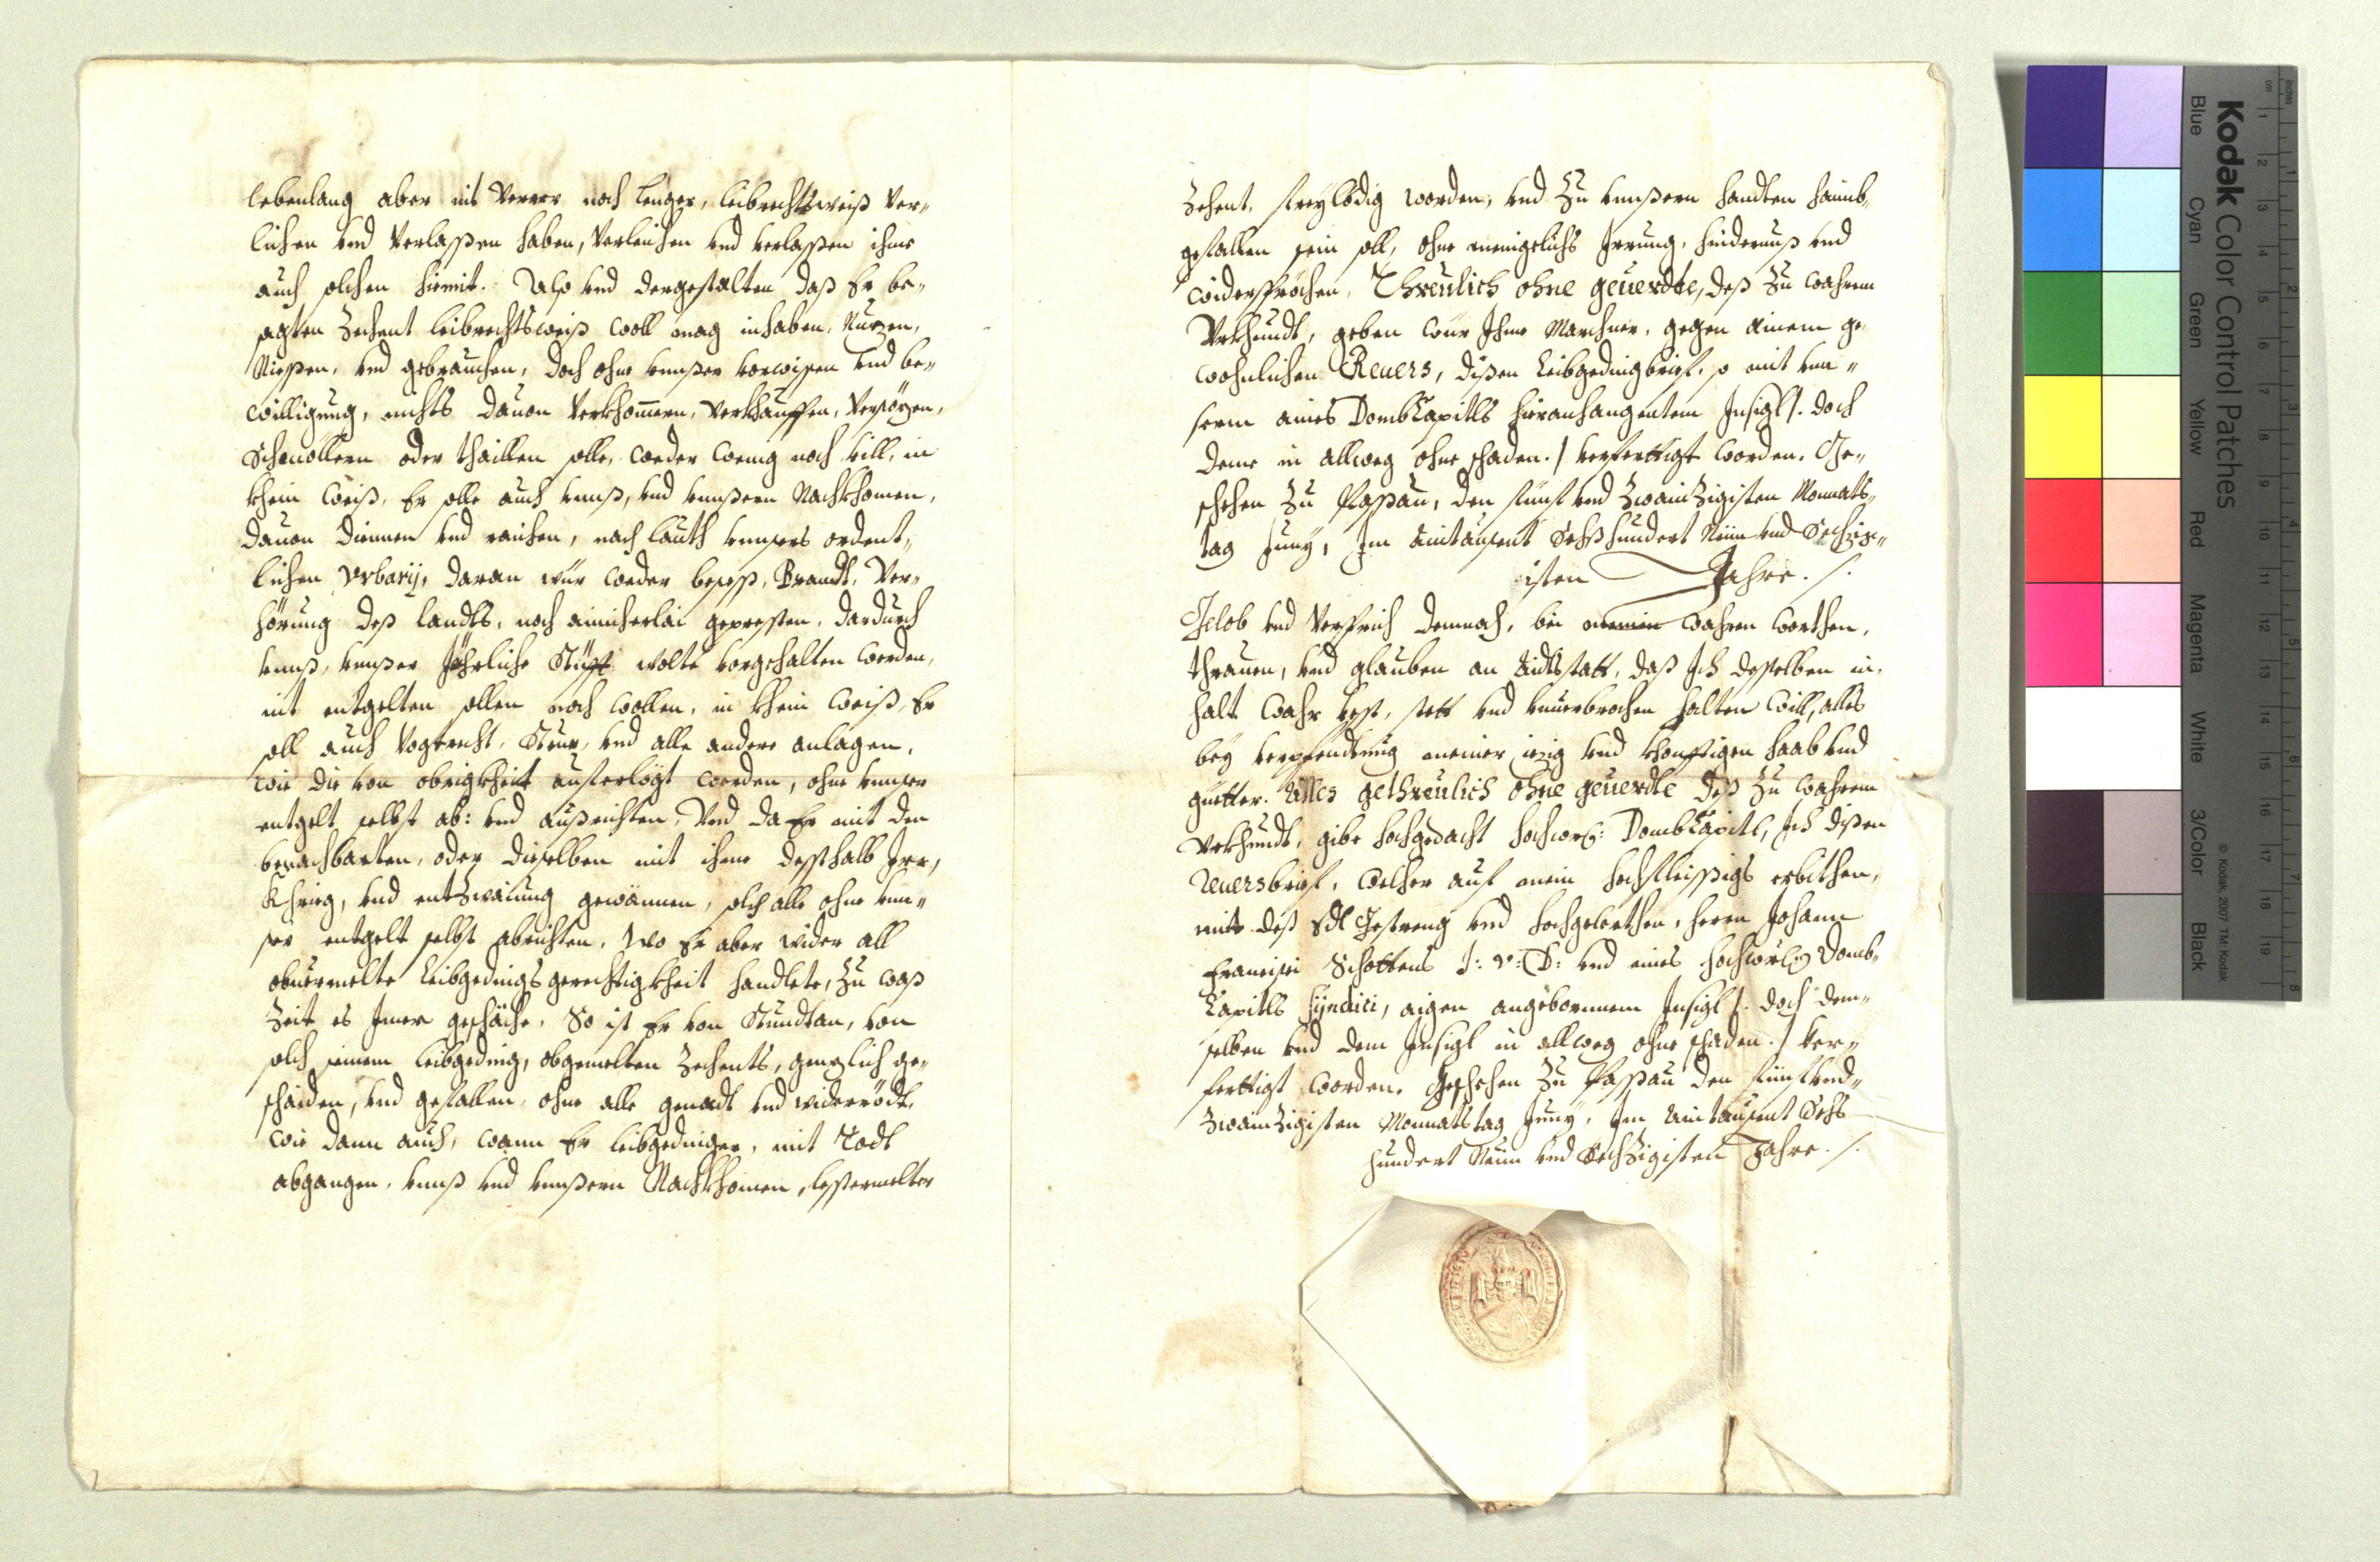 lebenlang aber nit Verrer noch lenger, leibrechtsweiß Ver„
lichen vnd Verlaßen haben, Verleichen vnd verlaßen ihme
auch solchen hiemit. Also vnd dergestalten daß Er be„
sagten Zechent leibrechtsweiß woll mag inhaben, Nuzen,
Niessen, vnd gebrauchen, doch ohne vnnßer vorwissen vnd be„
willigung, nichts dauon Verkhommern, verkhauffen, Versözen,
Schmöllern oder thaillen solle, weder wenig noch vill, in
khein weiß, Er solle auch vnnß, vnd vnnßern Nachkhomen,
dauon diennen vnd raichen, nach lauth vnnsers ordent„
lichen Vrbarij, daran wür weder beseß, Brandt, Ver„
hörung deß landts, noch ainicherlai gepresten, dardurch
vnnß, vnnßer Jährliche Stüfft wolte vorgehalten werden,
nit entgelten sollen noch wollen, in khein weiß, Er
soll auch Vogtrecht, Steur, vnd alle andere anlagen,
wie die von obrigkheit aufferlögt werden, ohne vnnser
entgelt selbst ab: vnd außrichten, Vnd da Er mit den
benachbarten, oder dieselben mit ihme desthalb Irr,
Khrieg, vnd entzwaiung gewünnen, solch alle ohne vnn„
ser entgelt selbst abrichten. Wo Er aber wider all
obuermelte leibgedings gerechtigkheit handlete, zu waß
Zeit es Imer geschäche, So ist Er von Stundtan, von
solch seinem leibgeding, obgemelten Zechents, genzlich ge„
schaiden, vnd gefallen, ohne alle genadt vnd widerrödt,
wie dann auch, wann Er leibgedinger, mit Todt
abgangen, vnnß vnd vnnßern Nachkhomen, lestermelter
Zehent, freylödig worden, vnd zu vnnßern handten haimb„
gefallen sein soll, ohne menigelichs Irrung, hindernuß vnd
widersprochen, Threulich ohne geuerdte, deß zu wahrem
Vrkhundt, geben wür Ihme Marchner, gegen ainem ge
wohnlichen Reuers, dißen Leibgedingbrief, so mit vnn„
serm aines Dombkapitls hieranhangentem Insigl /. doch
deme in allweg ohne schaden ./ verferttigt worden. Ge„
schehen zu Passau, den fünf vnd zwainzigisten Monnats„
tag Juny, Im aintausent Sechßhundert Neün vnd Sechzig„
isten Jahre. /.
Gelob vnd Versprich demnach, bei meinen wahren worthen,
thrauen, vnd glauben an Aidtsstatt, daß Ich desselben in„
halt wahr vest, stett vnd vnuerbrochen halten will, alles
bey verpfendtung meiner iezig vnd khonfftigen haab vnd
güetter. Alles gethreulich ohne geuerdte deß zu wahrem
Vrkhundt, gibe hochgedacht hochw: Dombkapitl, Ich dißen
Reuersbrief, welcher auf mein hochfleissigs erbithen,
mit deß Edl Gestreng vnd hochgelerthen, herrn Johann
Francisci Schottens J: V: D: vnd eines hochwürdig Domb„
kapitls Syndici, aigen angebornnem Insigl /. doch dem„
selben vnd dem Insigl in allweg ohne schaden ./ Ver„
ferttigt worden. Geschehen zu Passau den fünfvnd„
zwainzigisten Monnatstag Juny, Im aintausent Sechs
hundert Neün vnd Sechzigisten Jahre. /.
Kodak Color Control Patches
Blue Cyan Green Yellow Red Magenta White 3/Color Black
© Kodak, 2007 TM: Kodak
inches 1 2 3 4 5 6 7 8
cm 1 2 3 4 5 6 7 8 9 10 11 12 13 14 15 16 17 18 19